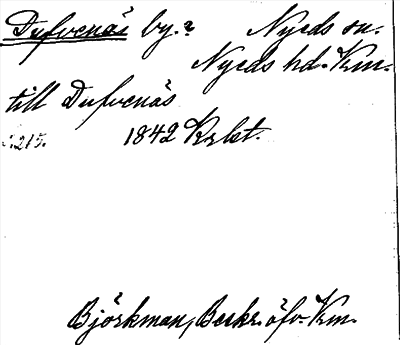 Dufvenäs by.? Nyeds sn.
Nyeds hd. Krm.
till Dufvenäs
s. 215. 1842 Krbt.
Björkman, Beskr. öfv. Krm.